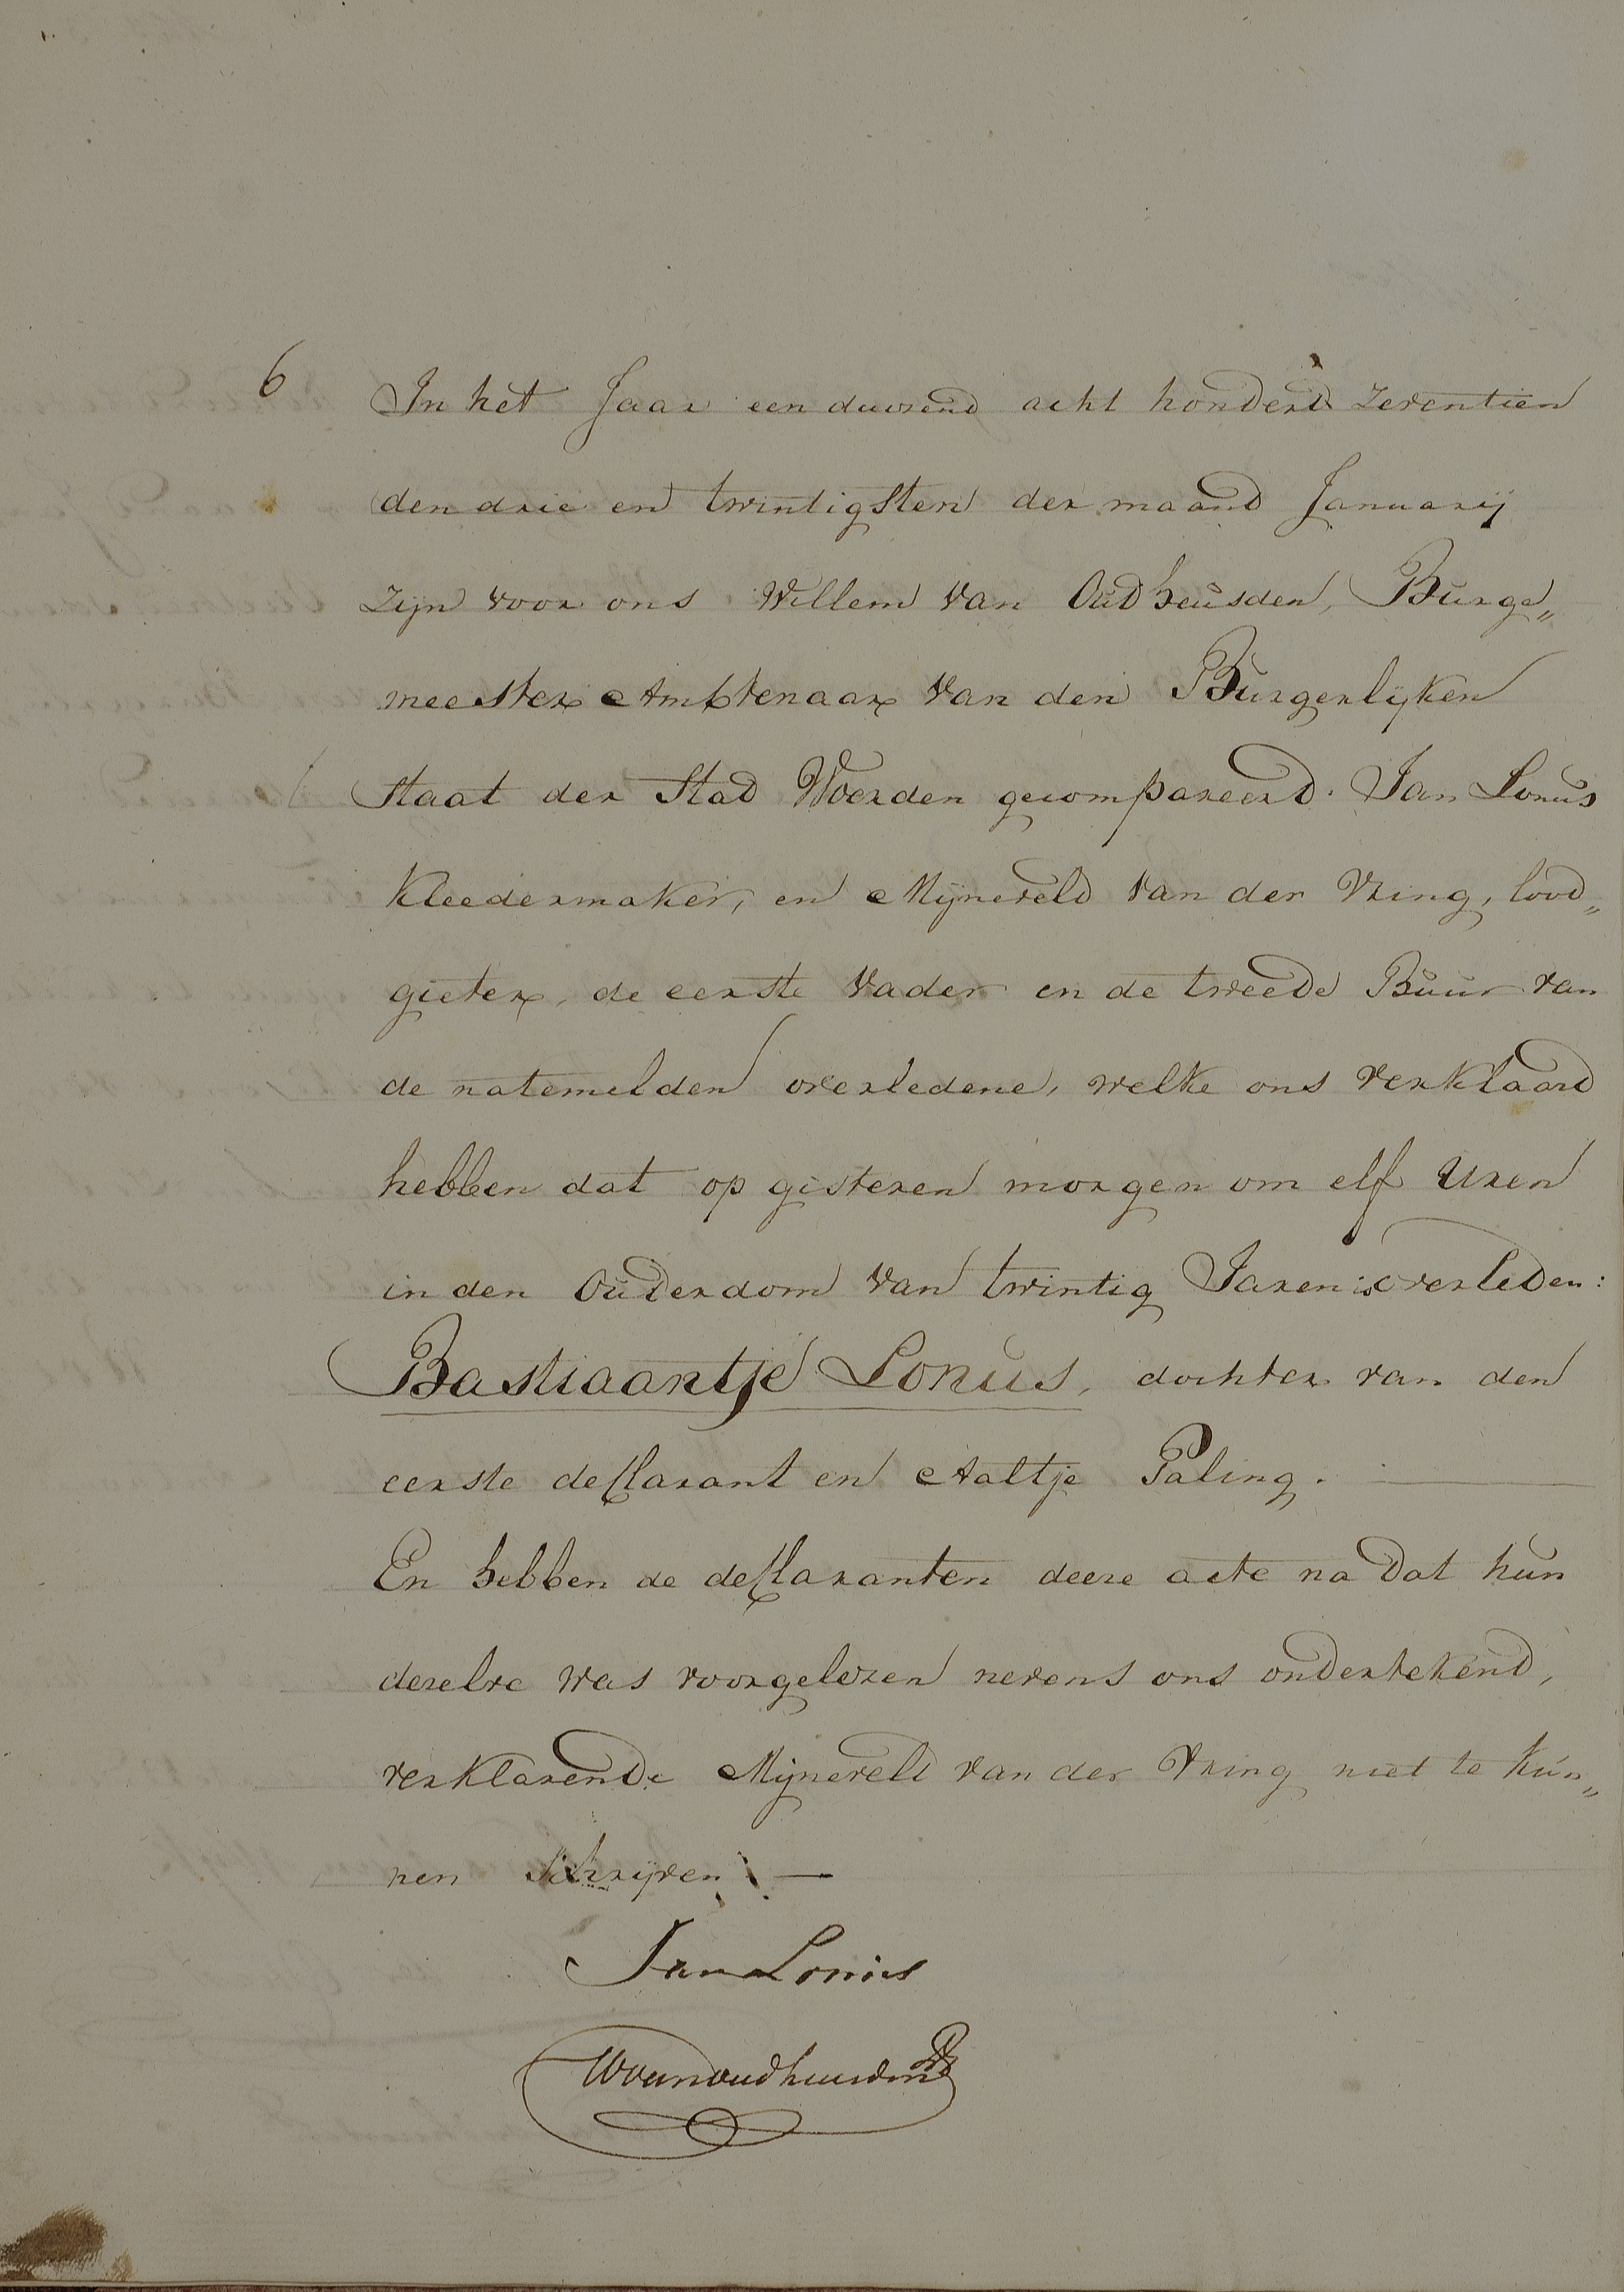 6
In het Jaar een duuzend acht honderd zeventien
den drie en twintigsten der maand Januarij
zijn voor ons Willem van Oudheusden, Burge„
meester Ambtenaar van den Burgerlijken
staat der Stad Woerden gecompareerd. Jan Lonus
Kleedermaker, en Mijneveld van der Vring, lood„
gieter, de eerste Vader en de tweede Buur van
de natemelden overledene, welke ons verklaard
hebben dat op gisteren morgen om elf Uren
in den Ouderdom van twintig Jaren is overleden:
Bastiaantje Lonus, dochter van den
eerste declarant en Aaltje Paling.
En hebben de declaranten deeze acte na dat hun
dezelve was voorgelezen nevens ons ondertekend,
verklarende Mijneveld van der Vring niet te kun„
nen Schrijven. —
Jan Lonus
W van oudheusden